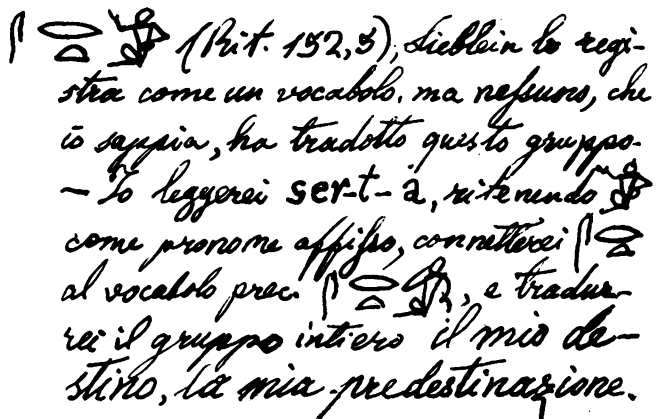 𓋴𓂋𓏏 (Rit. 152,5), Lieblein lo regi-
stra come un vocabolo. ma neſsuno, che
io sappia, ha tradotto questo gruppo.
— Io leggerei ser-t-à, ritenendo
come pronome affiſso, connetterei 𓋴𓂋𓏏
al vocabolo prec. 𓋴𓂋𓏏, e tradur-
rei il gruppo intiero il mio de-
stino, la mia predestinazione.